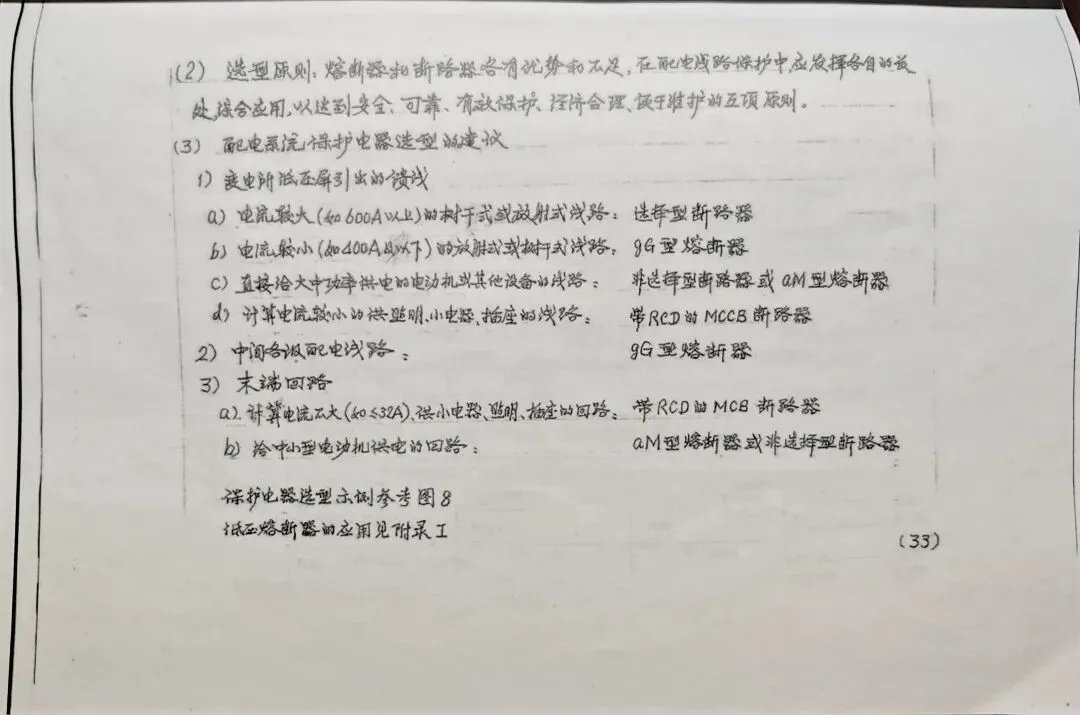 (2) 选型原则：熔断器和断路器各有优势和不足，在配电线路保护中应发挥各自的长
处，综合应用，以达到安全、可靠、有效保护、经济合理、便于维护的五项原则。
(3) 配电系统保护电器选型的建议
1) 变电所低压屏引出的馈线
a) 电流较大(如600A以上)的树干式或放射式线路： 选择型断路器
b) 电流较小(如400A及以下)的放射式或树干式线路： gG型熔断器
c) 直接给大中功率供电的电动机或其他设备的线路： 非选择型断路器或aM型熔断器
d) 计算电流较小的供照明、小电器、插座的线路： 带RCD的MCCB断路器
2) 中间各级配电线路： gG型熔断器
3) 末端回路
a) 计算电流不大(如≤32A)、供小电器、照明、插座的回路： 带RCD的MCB断路器
b) 给中小型电动机供电的回路： aM型熔断器或非选择型断路器
保护电器选型示例参考图8
低压熔断器的应用见附录I
(33)